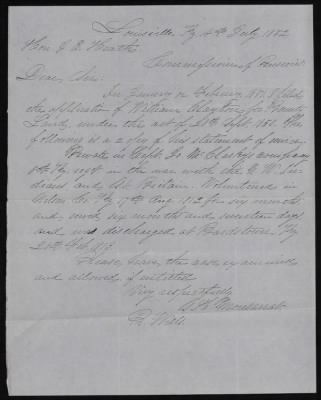 Louisville Ky 4th July 1852
Hon. J. E. Heath
Commissioner of Pensions
Dear Sir:
In January or February 1851, I filed
the application of William Clayton, for Bounty
Land, under the act of 28th Sept. 1850. The
following is a copy of his statement of service.
Private in Capt.
in the war with the N. W. In-
dians and Gt. Britain. Volunteered in
Nelson Co. Ky 17th Aug. 1812 for six months
and served six months and seventeen days
and was discharged at Bardstown Ky
Please, have the case examined
and allowed if entitled
Very respectfully